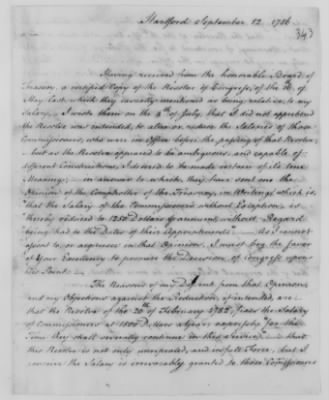 Hartford September 12. 1786
343
Having received from the honorable Board of
Treasury, a certified Copy of the Resolve of Congress, of the
May last, which they incently mentioned as being relative to my
Salary, I wrote them on the 4th of July, that I did not apprehend
the Resolve was intended to alter or reduce the Salaries of those
Commissioners, who were in Office before the passing of that Resolve,
but as the Resolve appeared to be ambiguous, and capable of
different Constructions, I desired to be made certain of its true
Meaning; in answer to which, they have sent me the
Opinion of the Comptroller of the Treasury, in Writing, which is,
"that the Salary of the Commissioners without Exception, is
thereby reduced to 1250 Dollars p annum without Regard
being had to the Dates of their Appointments". As I cannot
assent to, or acquiesce in that Opinion, I must beg the favor
of Your Excellency to procure the Decision of Congress upon
this Point.
The Reasons of my Dissent from that Opinion
and my Objections against the Reduction, if intended, are
that the Resolve of the 20th of February 1782, fixes the Salary
of Commissioners at 1500 Dollars a year expressly "for the
Time they shall severally continue in this Service", and that
this Resolve is not only unrepealed, and in full Force, but I
conceive the Salary is irrevocably granted to those Commissioners